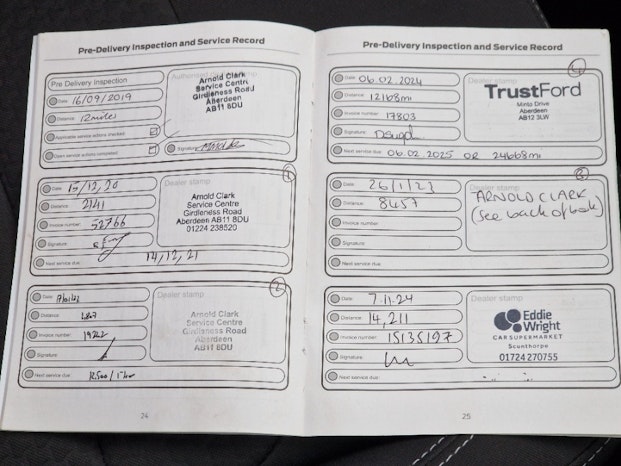 Pre-Delivery Inspection and Service Record
Pre Delivery Inspection
Date: 16/09/2019
Distance: 12 miles
Applicable service actions checked:
Open service actions completed:
Arnold Clark
Service Centre
Girdleness Road
Aberdeen
AB11 8DU
Signature:
1
Date: 15/12/20
Distance: 2141
Invoice number: 52766
Signature:
Next service due: 14/12/21
Dealer stamp
Arnold Clark
Service Centre
Girdleness Road
Aberdeen AB11 8DU
01224 238520
2
Date:
Distance:
Invoice number:
Signature:
Next service due:
Dealer stamp
Arnold Clark
Service Centre
Girdleness Road
Aberdeen
AB11 8DU
24
Pre-Delivery Inspection and Service Record
4
Date: 06.02.2024
Distance: 12168mi
Invoice number: 17803
Signature:
Next service due: 06.02.2025 OR 24668mi
Dealer stamp
TrustFord
Minto Drive
Aberdeen
AB12 3LW
3
Date: 26/1/23
Distance: 8457
Invoice number:
Signature:
Next service due:
Dealer stamp
ARNOLD CLARK
(See back of book)
Date: 7.11.24
Distance: 14,211
Invoice number: 15135197
Signature:
Next service due:
Dealer stamp
Eddie
Wright
CAR SUPERMARKET
Scunthorpe
01724 270755
25